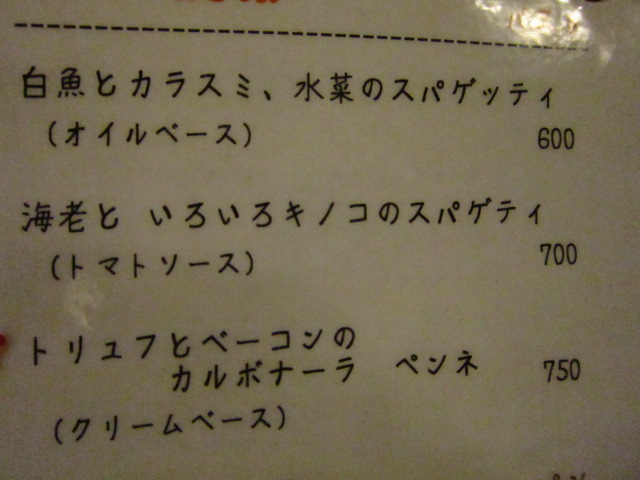 白魚とカラスミ、水菜のスパゲッティ
(オイルベース) 600
海老と いろいろキノコのスパゲティ
(トマトソース) 700
トリュフとベーコンの
カルボナーラ ペンネ 750
(クリームベース)